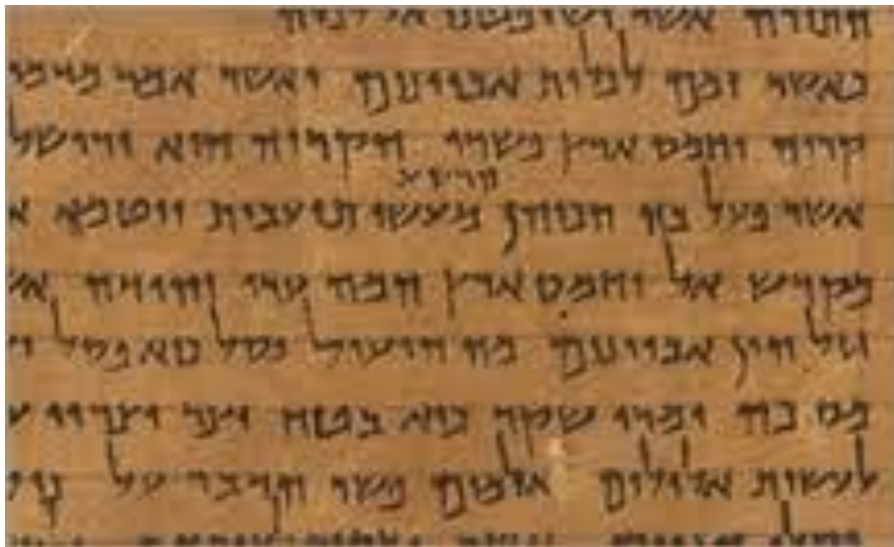 התורה אשר ישופטנו אל לכלה
כאשר זמם לכלות אביונים ואשר אמר מדמי
קריה וחמס ארץ פשרו הקריה היא ירושל
הרשע
אשר פעל בה הכוהן מעשי תועבות ויטמא
מקדש אל וחמס ארץ המה ערי יהודה
גזל הון אביונים מה הועיל פסל כיא פסל
מסכה ומרי שקר כיא בטח יצר יצריו
לעשות אלילים אלמים פשר הדבר על